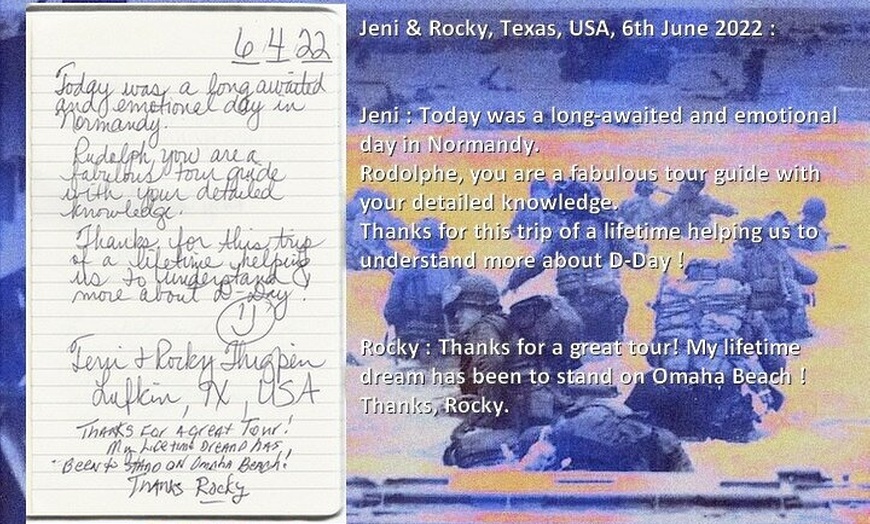 6 4 22
Today was a long awaited
and emotional day in
Normandy.
Rudolph, you are a
fabulous tour guide
with your detailed
knowledge.
Thanks for this trip
of a lifetime helping
us to understand
more about D-Day!
Jeni + Rocky Thigpen
Lufkin, TX, USA
Thanks for a great Tour!
My Lifetime Dream has
Been to Stand on Omaha Beach!
Thanks Rocky
Jeni & Rocky, Texas, USA, 6th June 2022 :
Jeni : Today was a long-awaited and emotional
day in Normandy.
Rodolphe, you are a fabulous tour guide with
your detailed knowledge.
Thanks for this trip of a lifetime helping us to
understand more about D-Day !
Rocky : Thanks for a great tour! My lifetime
dream has been to stand on Omaha Beach !
Thanks, Rocky.